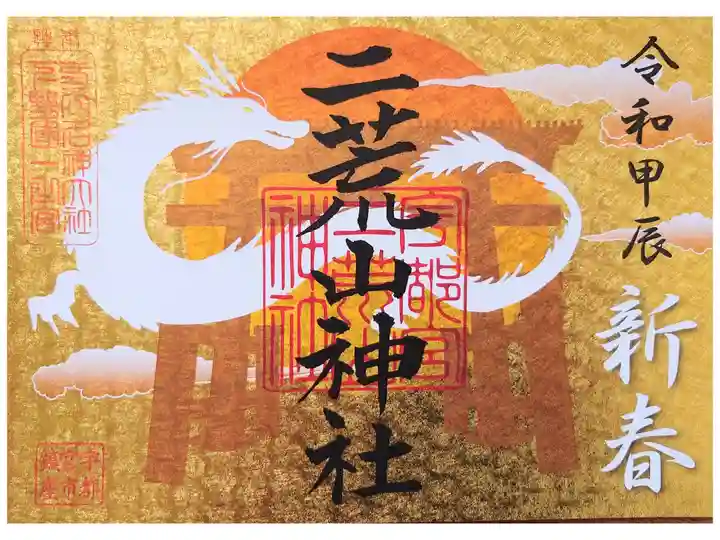 令和甲辰
新春
二荒山神社
宇都宮
二荒山
神社
式内名神大社
下野國一之宮
宇都
宮市
鎮座